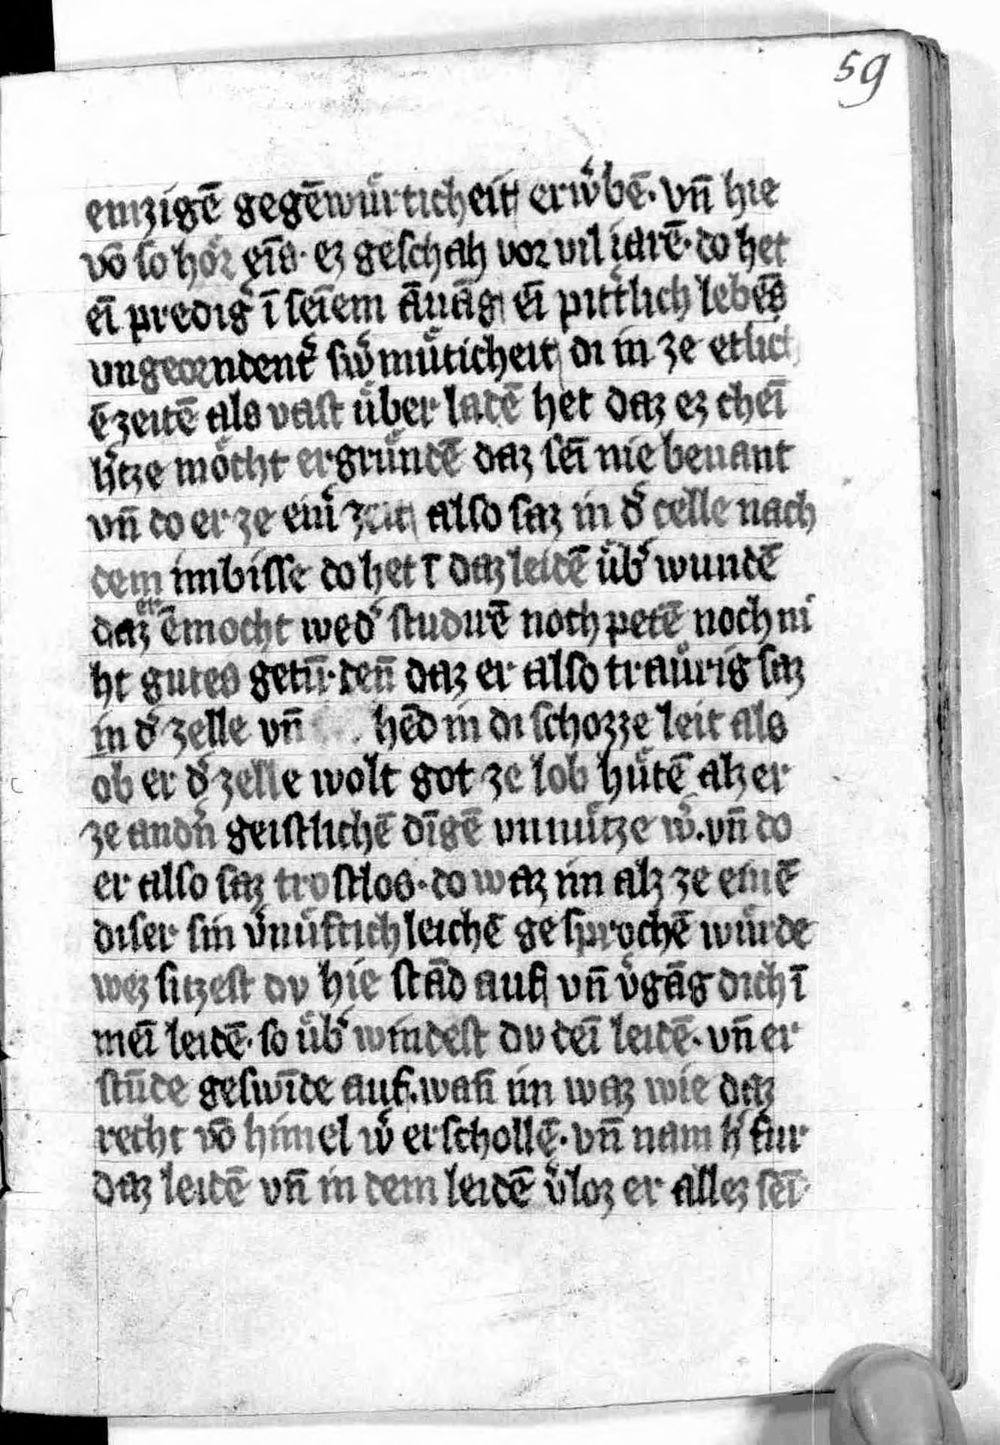 59
einzigē gegēwuͤrticheit erw̾bē · vn̄ hie
vō so hoͤr eīs · ez geschah vor vil iarē · do het
eī prediǵ ī seīem āuāg eī pittͤlich lebēs
ungeorndent̾ sw̾muͤticheit di in ze etlich
ē zeitē als vast uͤber ladē het daz ez cheī
h̾tze moͤcht ergruͤndē daz seī nie benant
vn̄ do er ze ein̾ zeit also saz in d̾ celle nach
dem imbisse do het ī daz leidē uͤb̾wundē
daz er ēmocht wed̾ studirē noch petē noch ni
ht gutes getū · den̄ daz er also trauͤrig saz
in d̾ zelle vn̄ hēd in di schozze leit als
ob er d̾ zelle wolt got ze lob huͤtē alz er
ze andn̾ geistlichē dīgē unnuͤtze w̾ · vn̄ do
er also saz trostlos · do waz im alz ze einē
diser sin v̾nuͤftichleichē gesprochē wuͤrde
wez sitzest du hie stād auf vn̄ v̾gāg dich ī
meī leidē · so uͤb̾windest du deī leidē · vn̄ er
stūde geswīde auf · wan̄ im waz wie daz
recht vō himel w̾ erschollē · vn̄ nam h̾ fur
daz leidē vn̄ in dem leidē v̾loz er allez seī